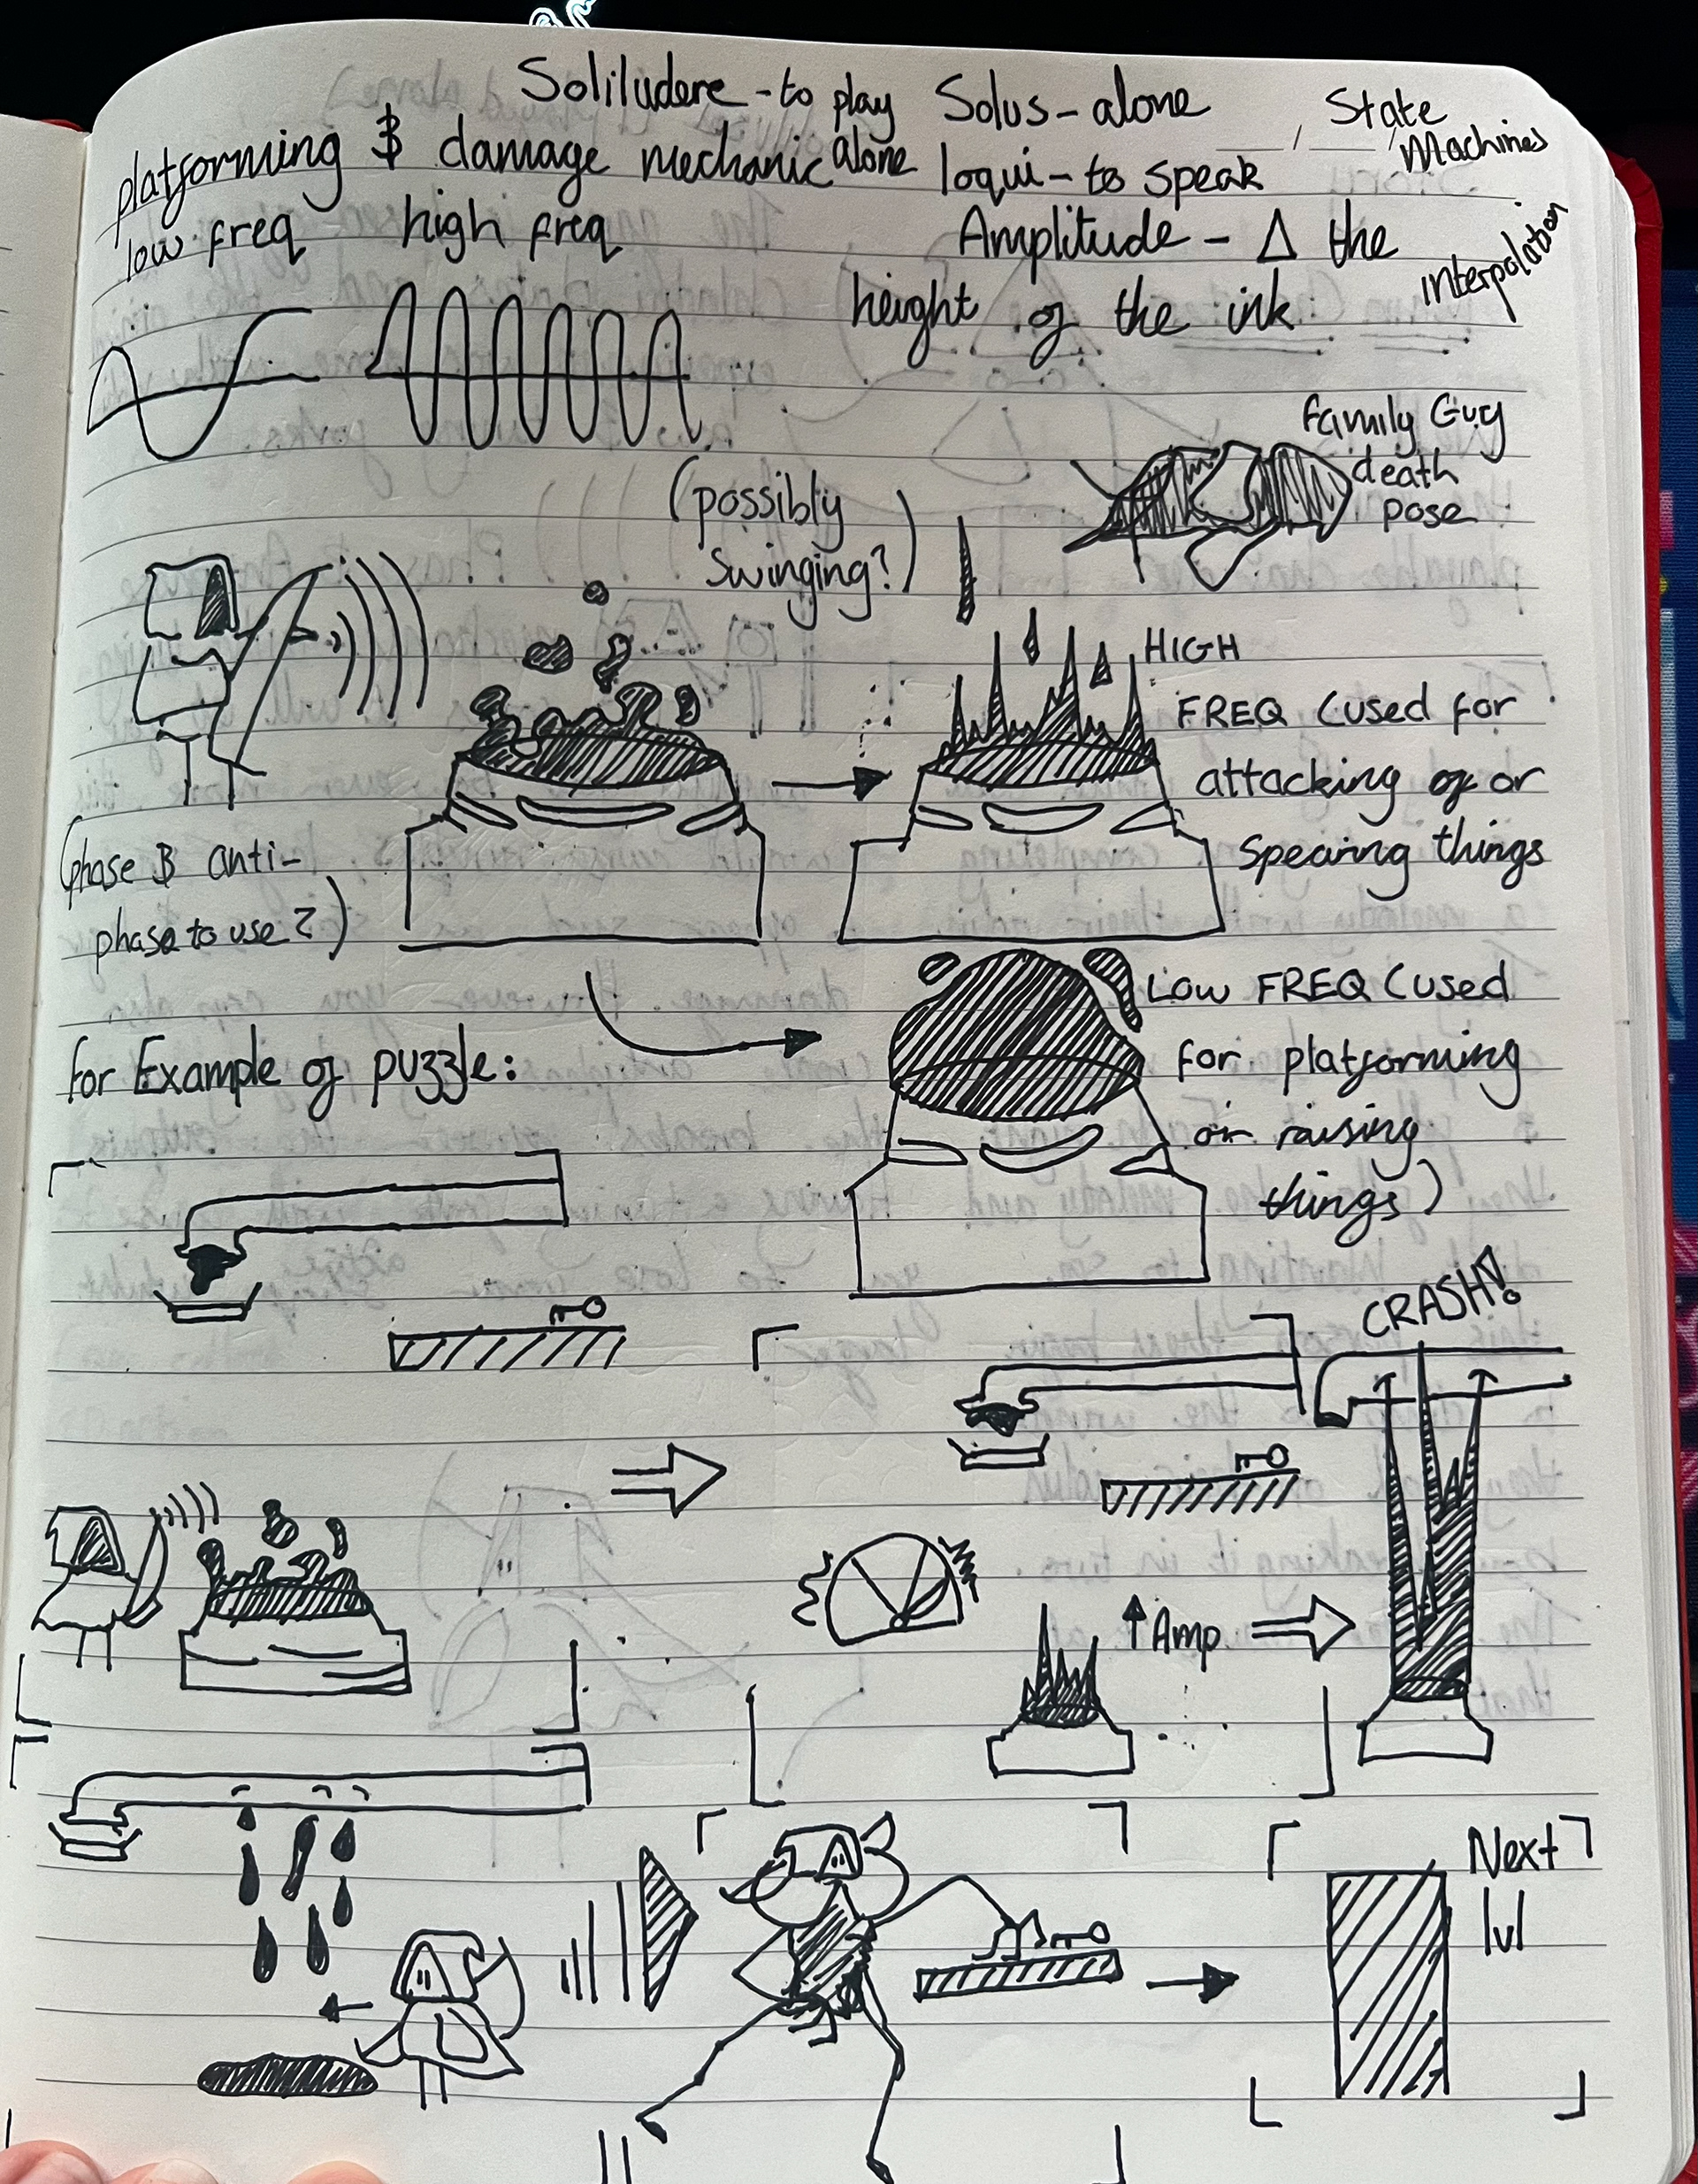 Soliludere - to play alone
Solus - alone
loqui - to speak
State Machines
interpolation
platforming & damage mechanic
low freq high freq
Amplitude - Δ the
height of the ink
Family Guy
death
pose
(possibly
swinging?)
HIGH
FREQ (used for
attacking or
spearing things
(phase & anti-
phase to use?)
LOW FREQ (used
for platforming
or raising
things)
for Example of puzzle:
CRASH!
↑ Amp
Next
lvl